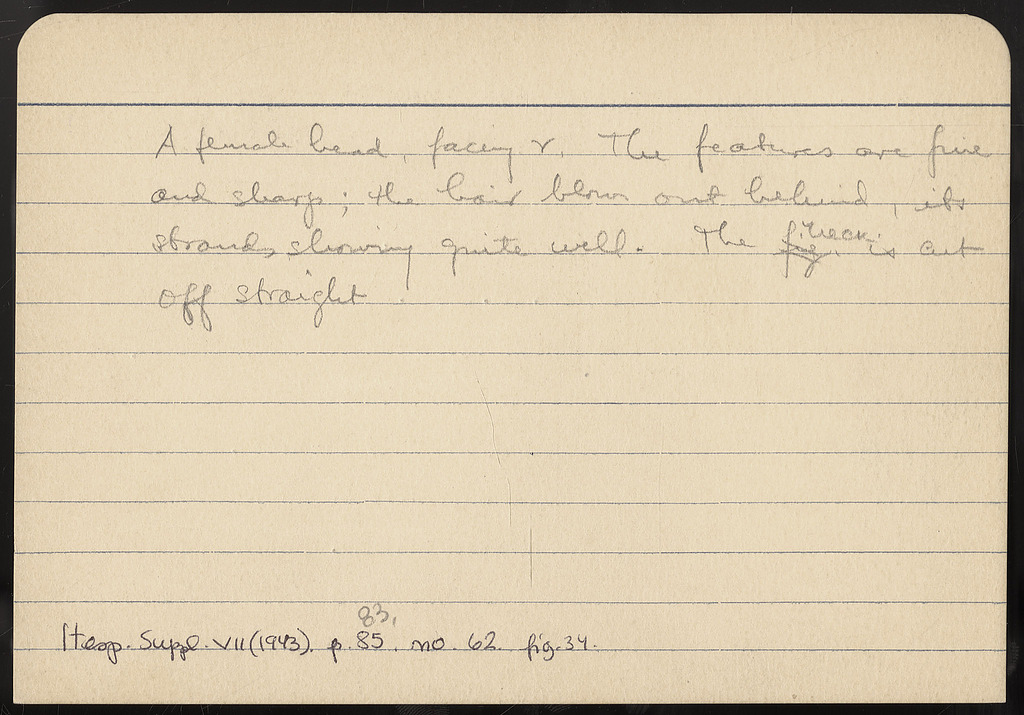 A female head, facing r. The features are fine
and sharp; the hair blown out behind, its
strands showing quite well. The fig. neck is cut
off straight
83,
Hesp. Suppl. VII (1943). p. 85. no. 62. fig. 34.